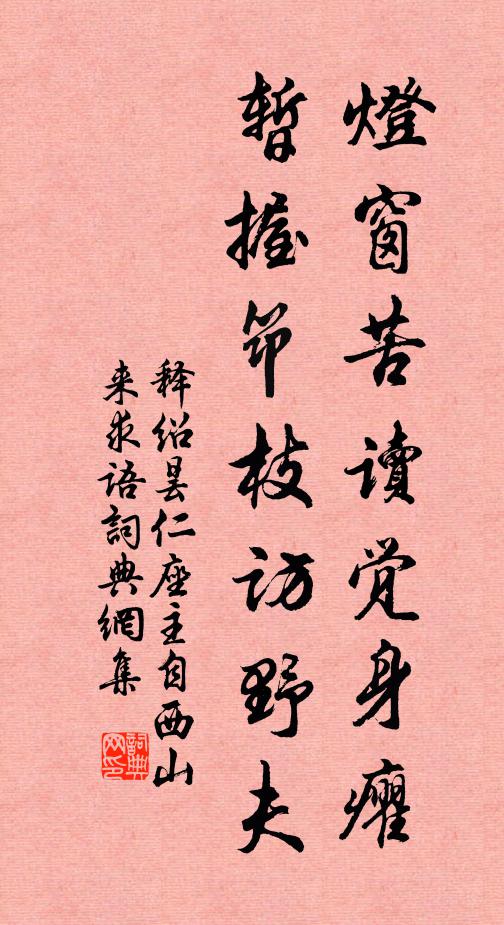 燈窗苦讀覺身癯
暫握筇枝訪野夫
釋紹曇仁座主自西山
来求语詞典網集
詞典网印